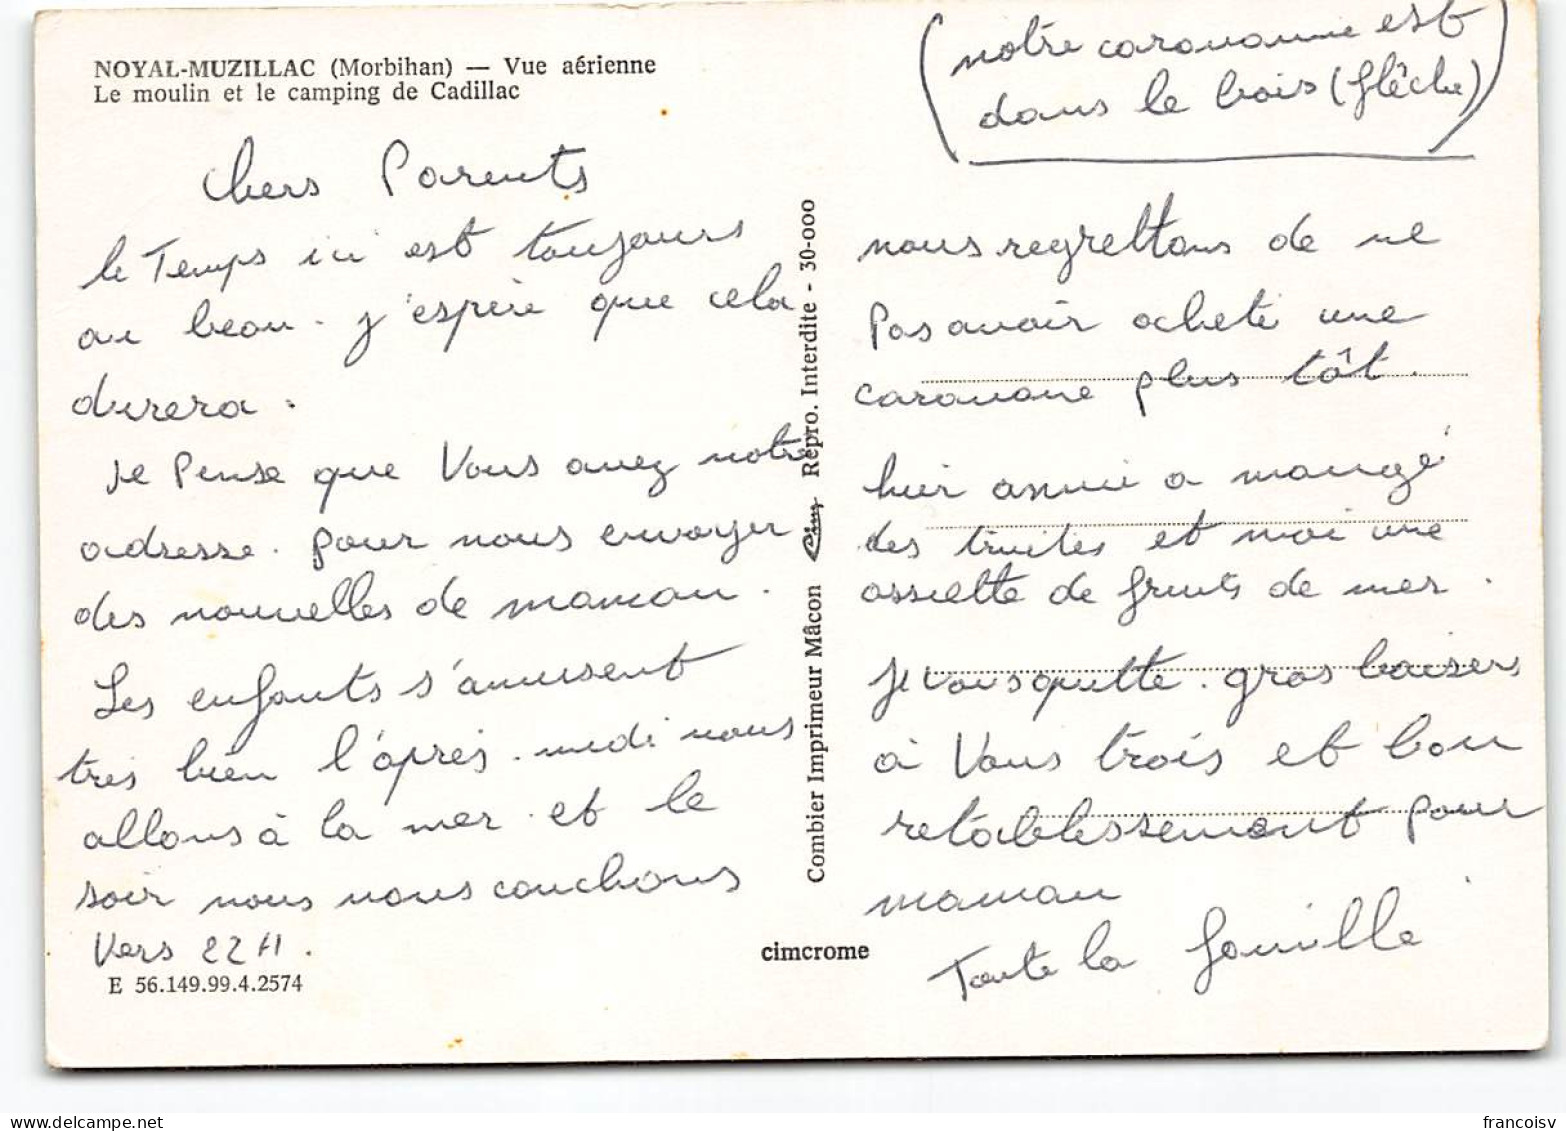 NOYAL-MUZILLAC (Morbihan) — Vue aérienne
Le moulin et le camping de Cadillac
Chers Parents
le Temps ici est toujours
au beau. j'espère que cela
durera.
Je Pense que Vous avez notre
adresse. pour nous envoyer
des nouvelles de maman.
Les enfants s'amusent
très bien l'après-midi nous
allons à la mer et le
soir nous nous couchons
Vers 22H.
E 56.149.99.4.2574
Combier Imprimeur Mâcon Cim Repro. Interdite - 30-000
cimcrome
(notre caravanne est
dans le bois (flêche))
nous regrettons de ne
Pas avoir acheté une
caravane plus tôt.
hier annie a mangé
des truites et moi une
assiette de fruits de mer.
Je vous quitte. gros baisers
à Vous trois et bon
retablissement pour
maman
Toute la famille
francoisv